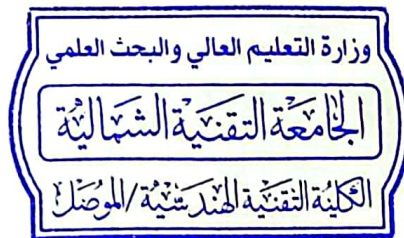 وزارة التعليم العالي والبحث العلمي
الجامعة التقنية الشمالية
الكلية التقنية الهندسية / الموصل